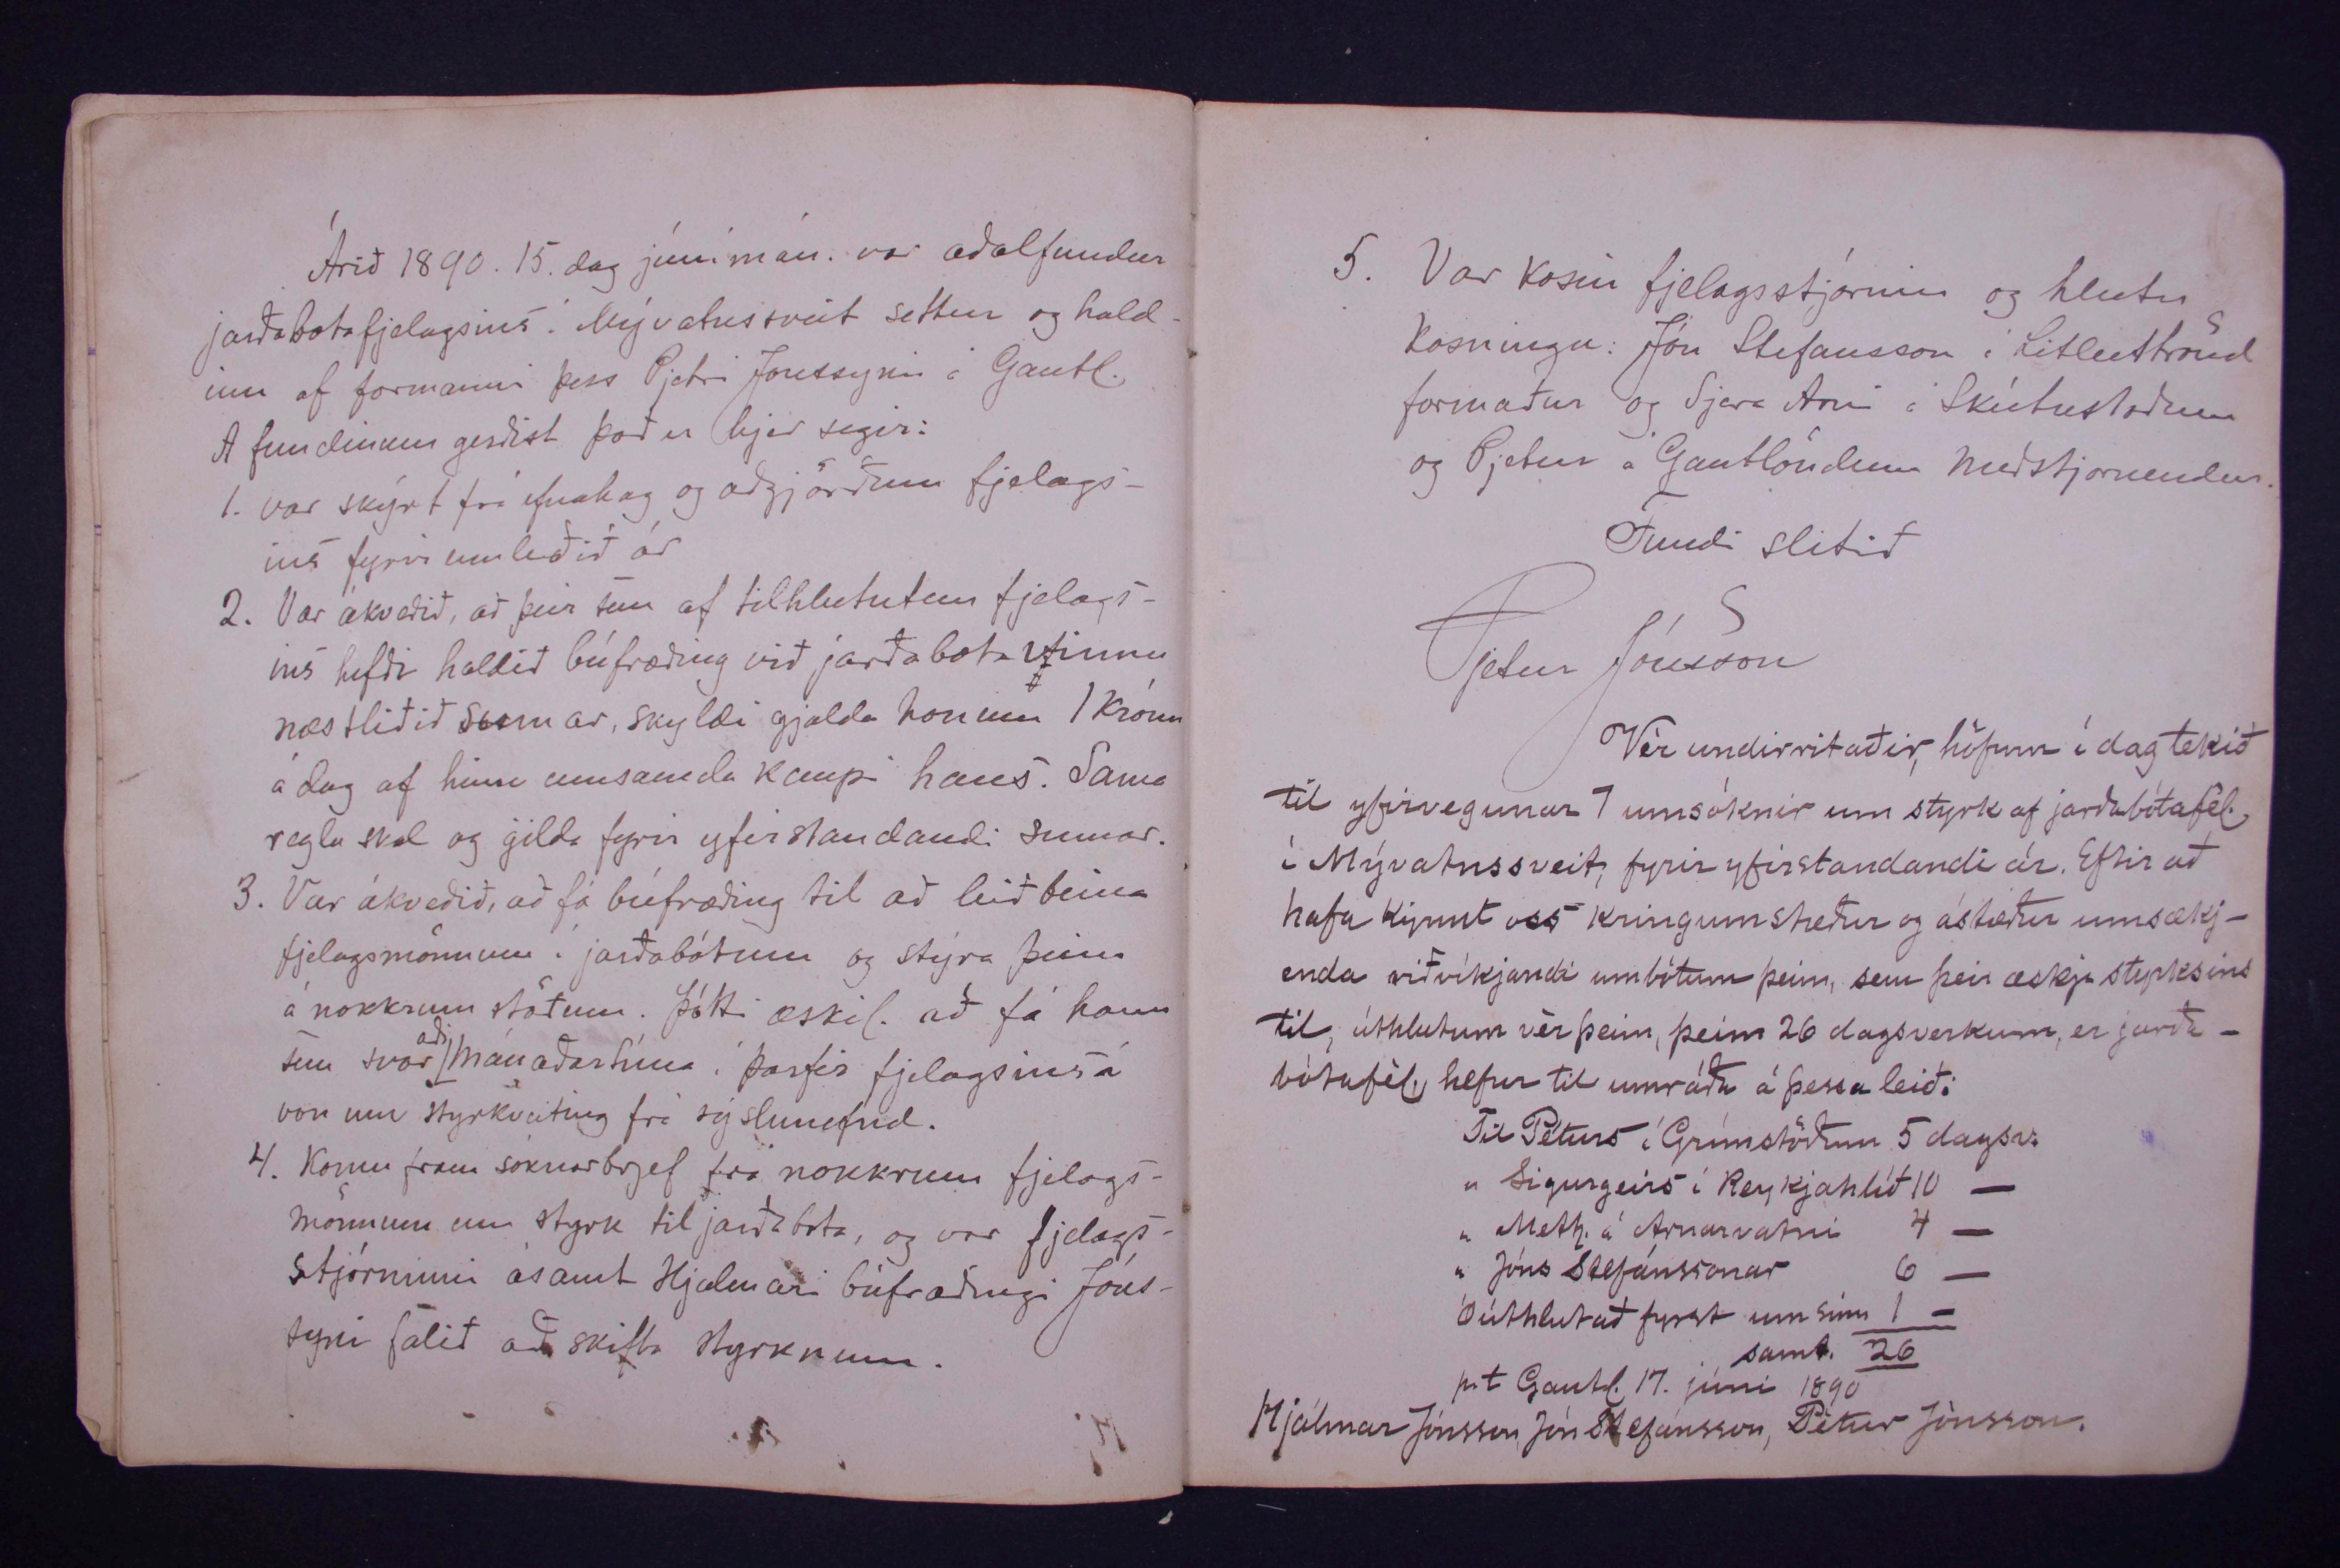 Árið 1890. 15. dag júnímán. var aðalfundur
jarðabotafjelagsins í Mývatnssveit settur og hald-
inn af formanni þess Pjetri Jónssyni á Gautl.
A fundinum gerðist það er hjer segir:
1. var skýrt frá efnahag og aðgjörðum fjelags-
ins fyrir umliðið ár
2. Var ákveðið, að þeir sem af tilhlututum fjelags-
ins hefði haldið búfræðing við jarðabota vinnu
næstliðið sumar, skyldi gjalda honum 1 krónu
á dag af hinu umsamda kaupi hans. Sama
regla skal og gilda fyrir yfirstandandi sumar.
3. Var ákveðið, að fá búfræðing til að leiðbeina
fjelagsmönnum í jarðabótum og stýra þeim
á nokkrum stöðum. Þótti æskil. að fá hann
sem svaraði 1 mánaðartíma í þarfir fjelagsins á
von um styrkveiting frá sýslunefnd.
4. Komu fram sóknarbrjef frá nokkrum fjelags-
mönnum um styrk til jarðabóta, og var fjelags-
stjórninni ásamt Hjálmari búfræðingi Jóns-
syni falið að skifta styrknum.
5. Var kosin fjelagsstjórnin og hlutu
kosningu: Jón Stefansson í Litluströnd
formaður og Sjera Arni á Skútustoðum
og Pjetur á Gautlöndum meðstjornendur.
Fundi slitið
Pjetur Jónsson
Vèr undirritaðir, höfum í dag tekið
til yfirvegunar 7 umsóknir um styrk af jarðabótafèl.
í Mývatnssveit, fyrir yfirstandandi ár. Eftir að
hafa kynnt oss kringumstæður og ástæður umsækj-
enda viðvíkjandi umbótum þeim, sem þeir æskja styrksins
til, úthlutum vèr þeim, þeim 26 dagsverkum, er jarða-
bótafèl. hefur til umráða á þessa leið:
Til Péturs í Grímstöðum 5 dagsv.
" Sigurgeirs í Reykjahlíð 10 —
" Meth. á Arnarvatni 4 —
" Jóns Stefánssonar 6 —
Óúthlutað fyrst um sinn 1 —
samt. 26
p.t Gautl. 17. júní 1890
Hjálmar Jónsson, Jón Stefánsson, Pètur Jónsson.